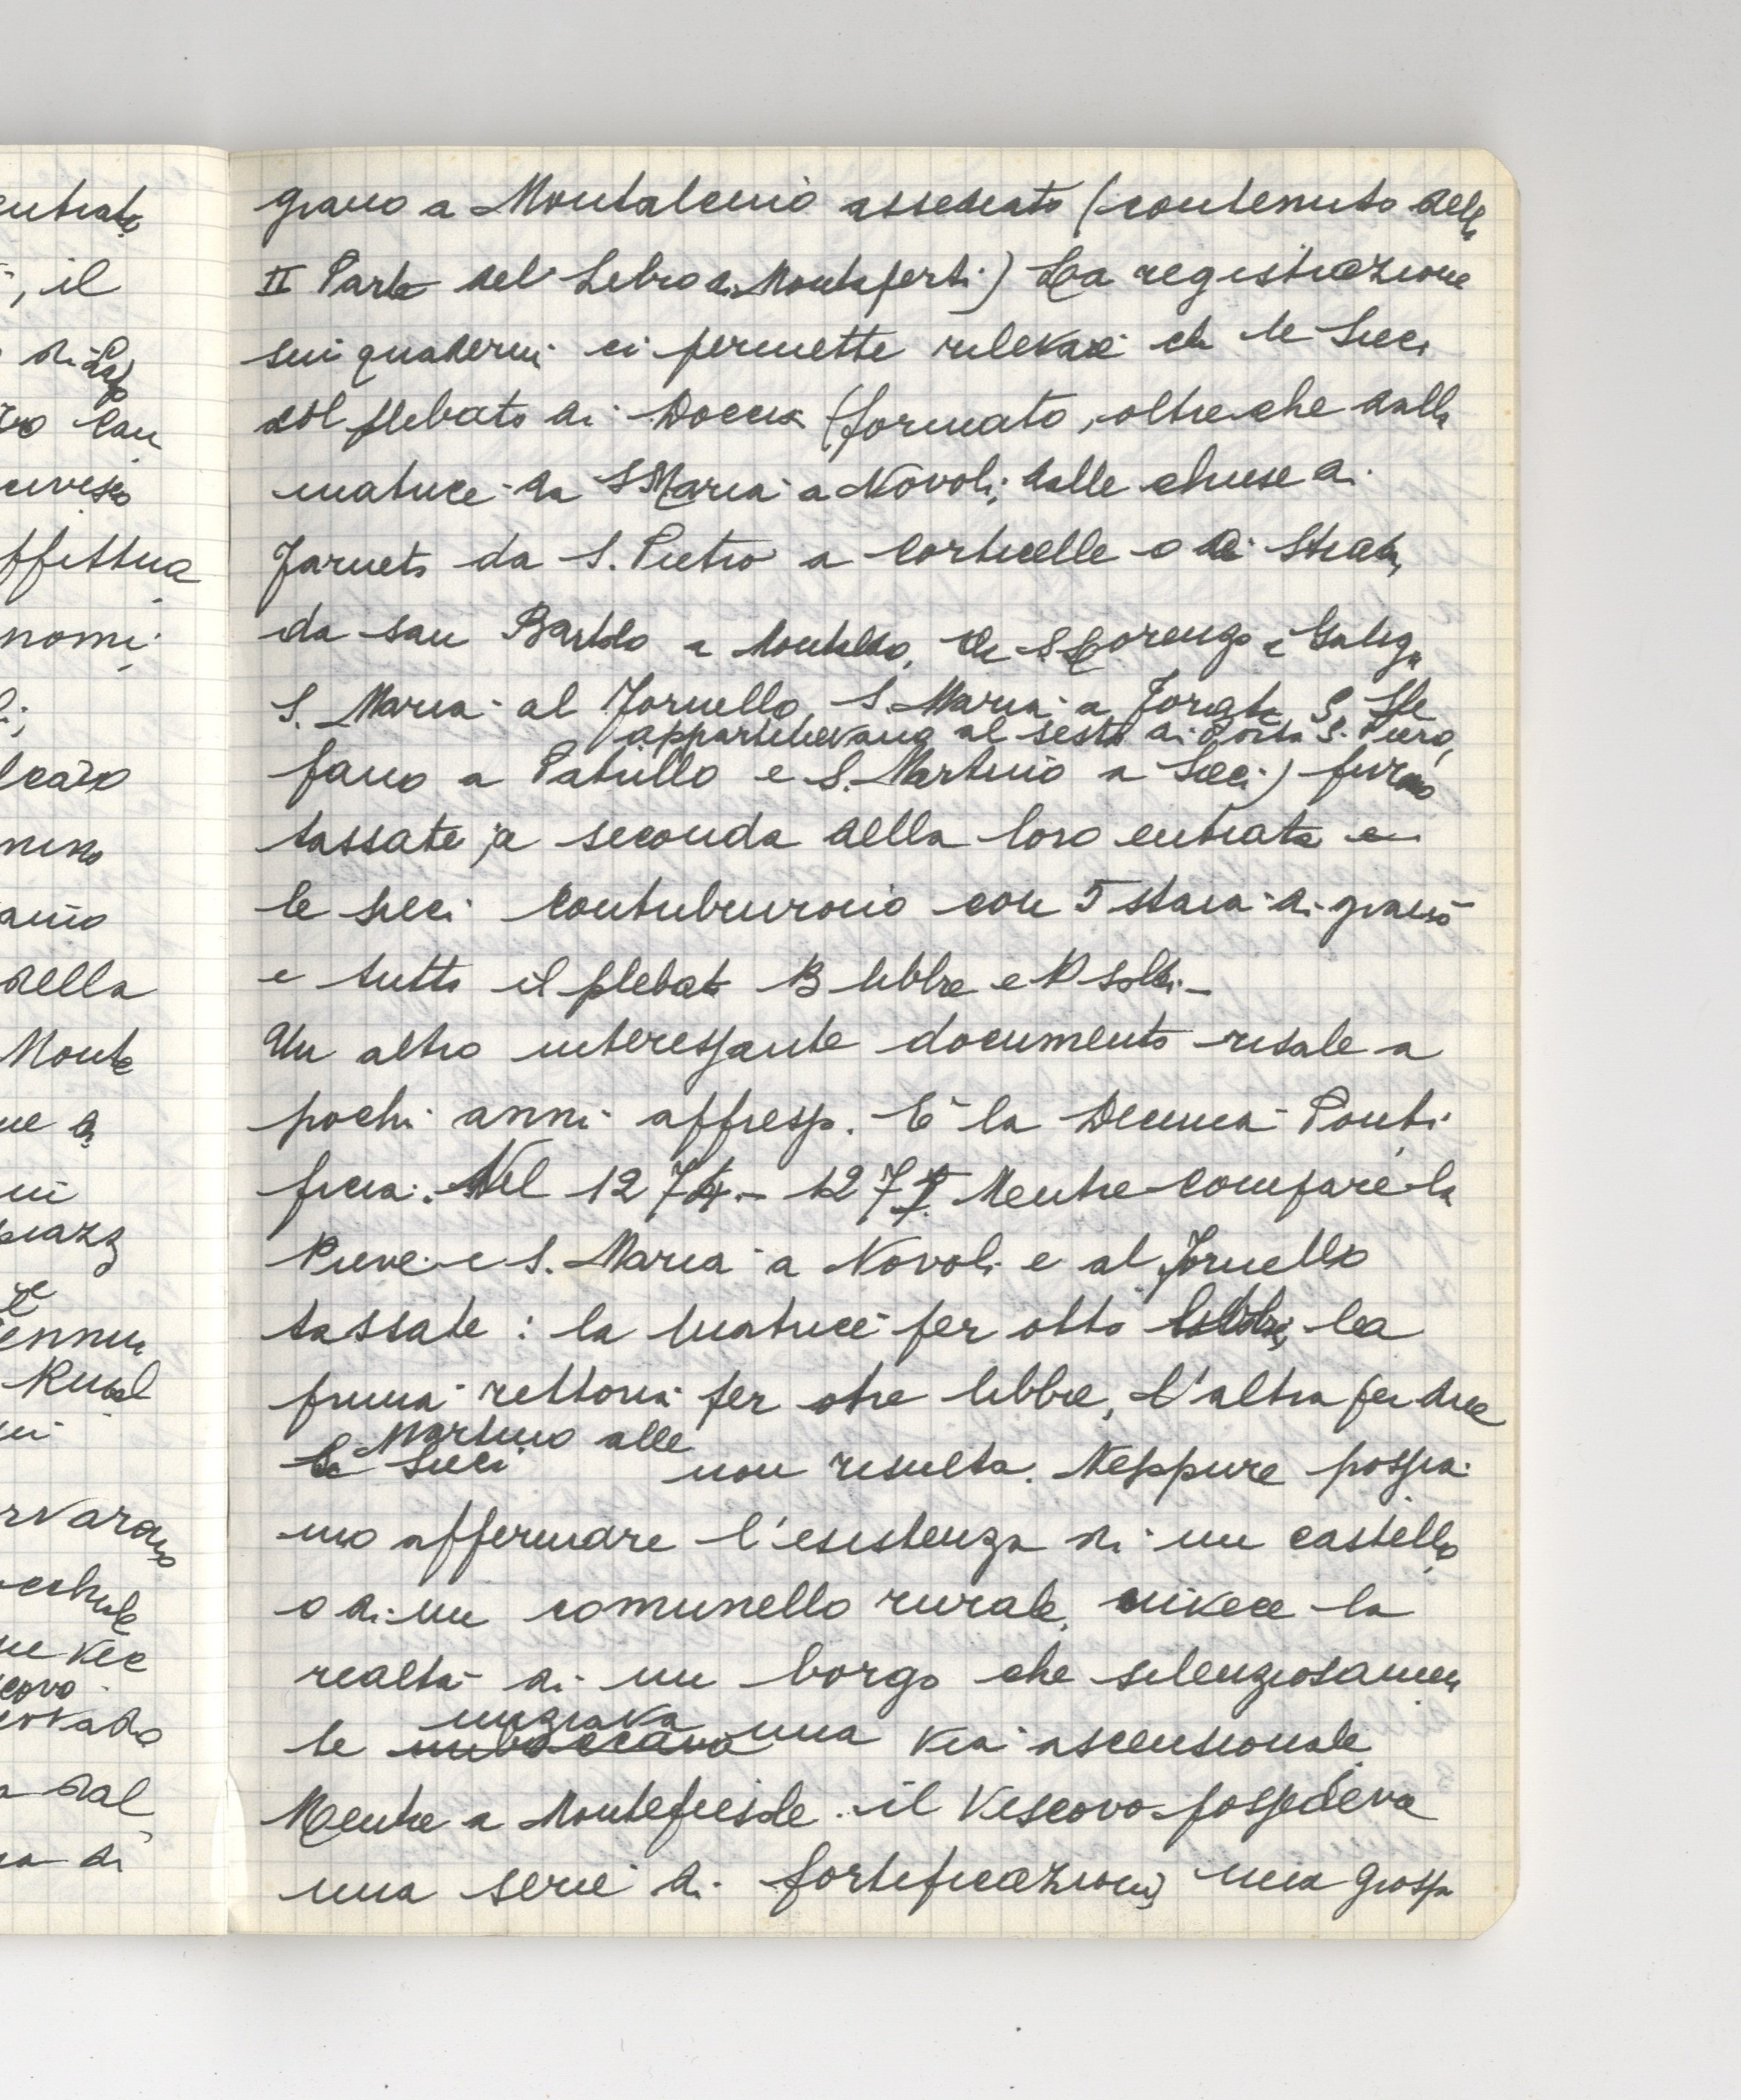 entrata
, il
di Lapo
ffettua
nomi
della
Monte
ne di
piazz
ervarono
ne Vec
covo
dal
a di
grano a Montalcino assediato (contenuto nella
II Parte del Libro di Montaperti) La registrazione
sui quaderni ci permette rilevare che le Sieci
col plebato di Doccia (formato, oltre che dalla
matrice da S Maria a Novoli, dalle chiese di
Farneto da S. Pietro a Corticelle o di Strada,
da san Bartolo a Montetto, da S Lorenzo a Galiga
S. Maria al Fornello S. Maria a Forata S. Ste
appartenevano al sesto di Porta S. Piero,
fano a Patrillo e S. Martino a Sieci) furono
tassate a seconda della loro entrata e
le Sieci contribuirono con 5 staia di grano
e tutto il plebato 13 libbre e 10 soldi -
Un altro interessante documento risale a
pochi anni appresso. È la Decima Ponti
ficia. Nel 1274 - 127 Mentre compare la
Pieve e S. Maria a Novoli e al Fornello
tassate : la matrice per otto libbre, la
prima rettoria per tre libbre, l'altra per due
Martino alle
Sieci non risulta. Neppure possia
mo affermare l'esistenza di un castello
o di un comunello rurale, invece la
realtà di un borgo che silenziosamen
iniziava
te imboccava una via ascensionale
Mentre a Montefiesole il Vescovo possedeva
una serie di fortificazioni, una grossa